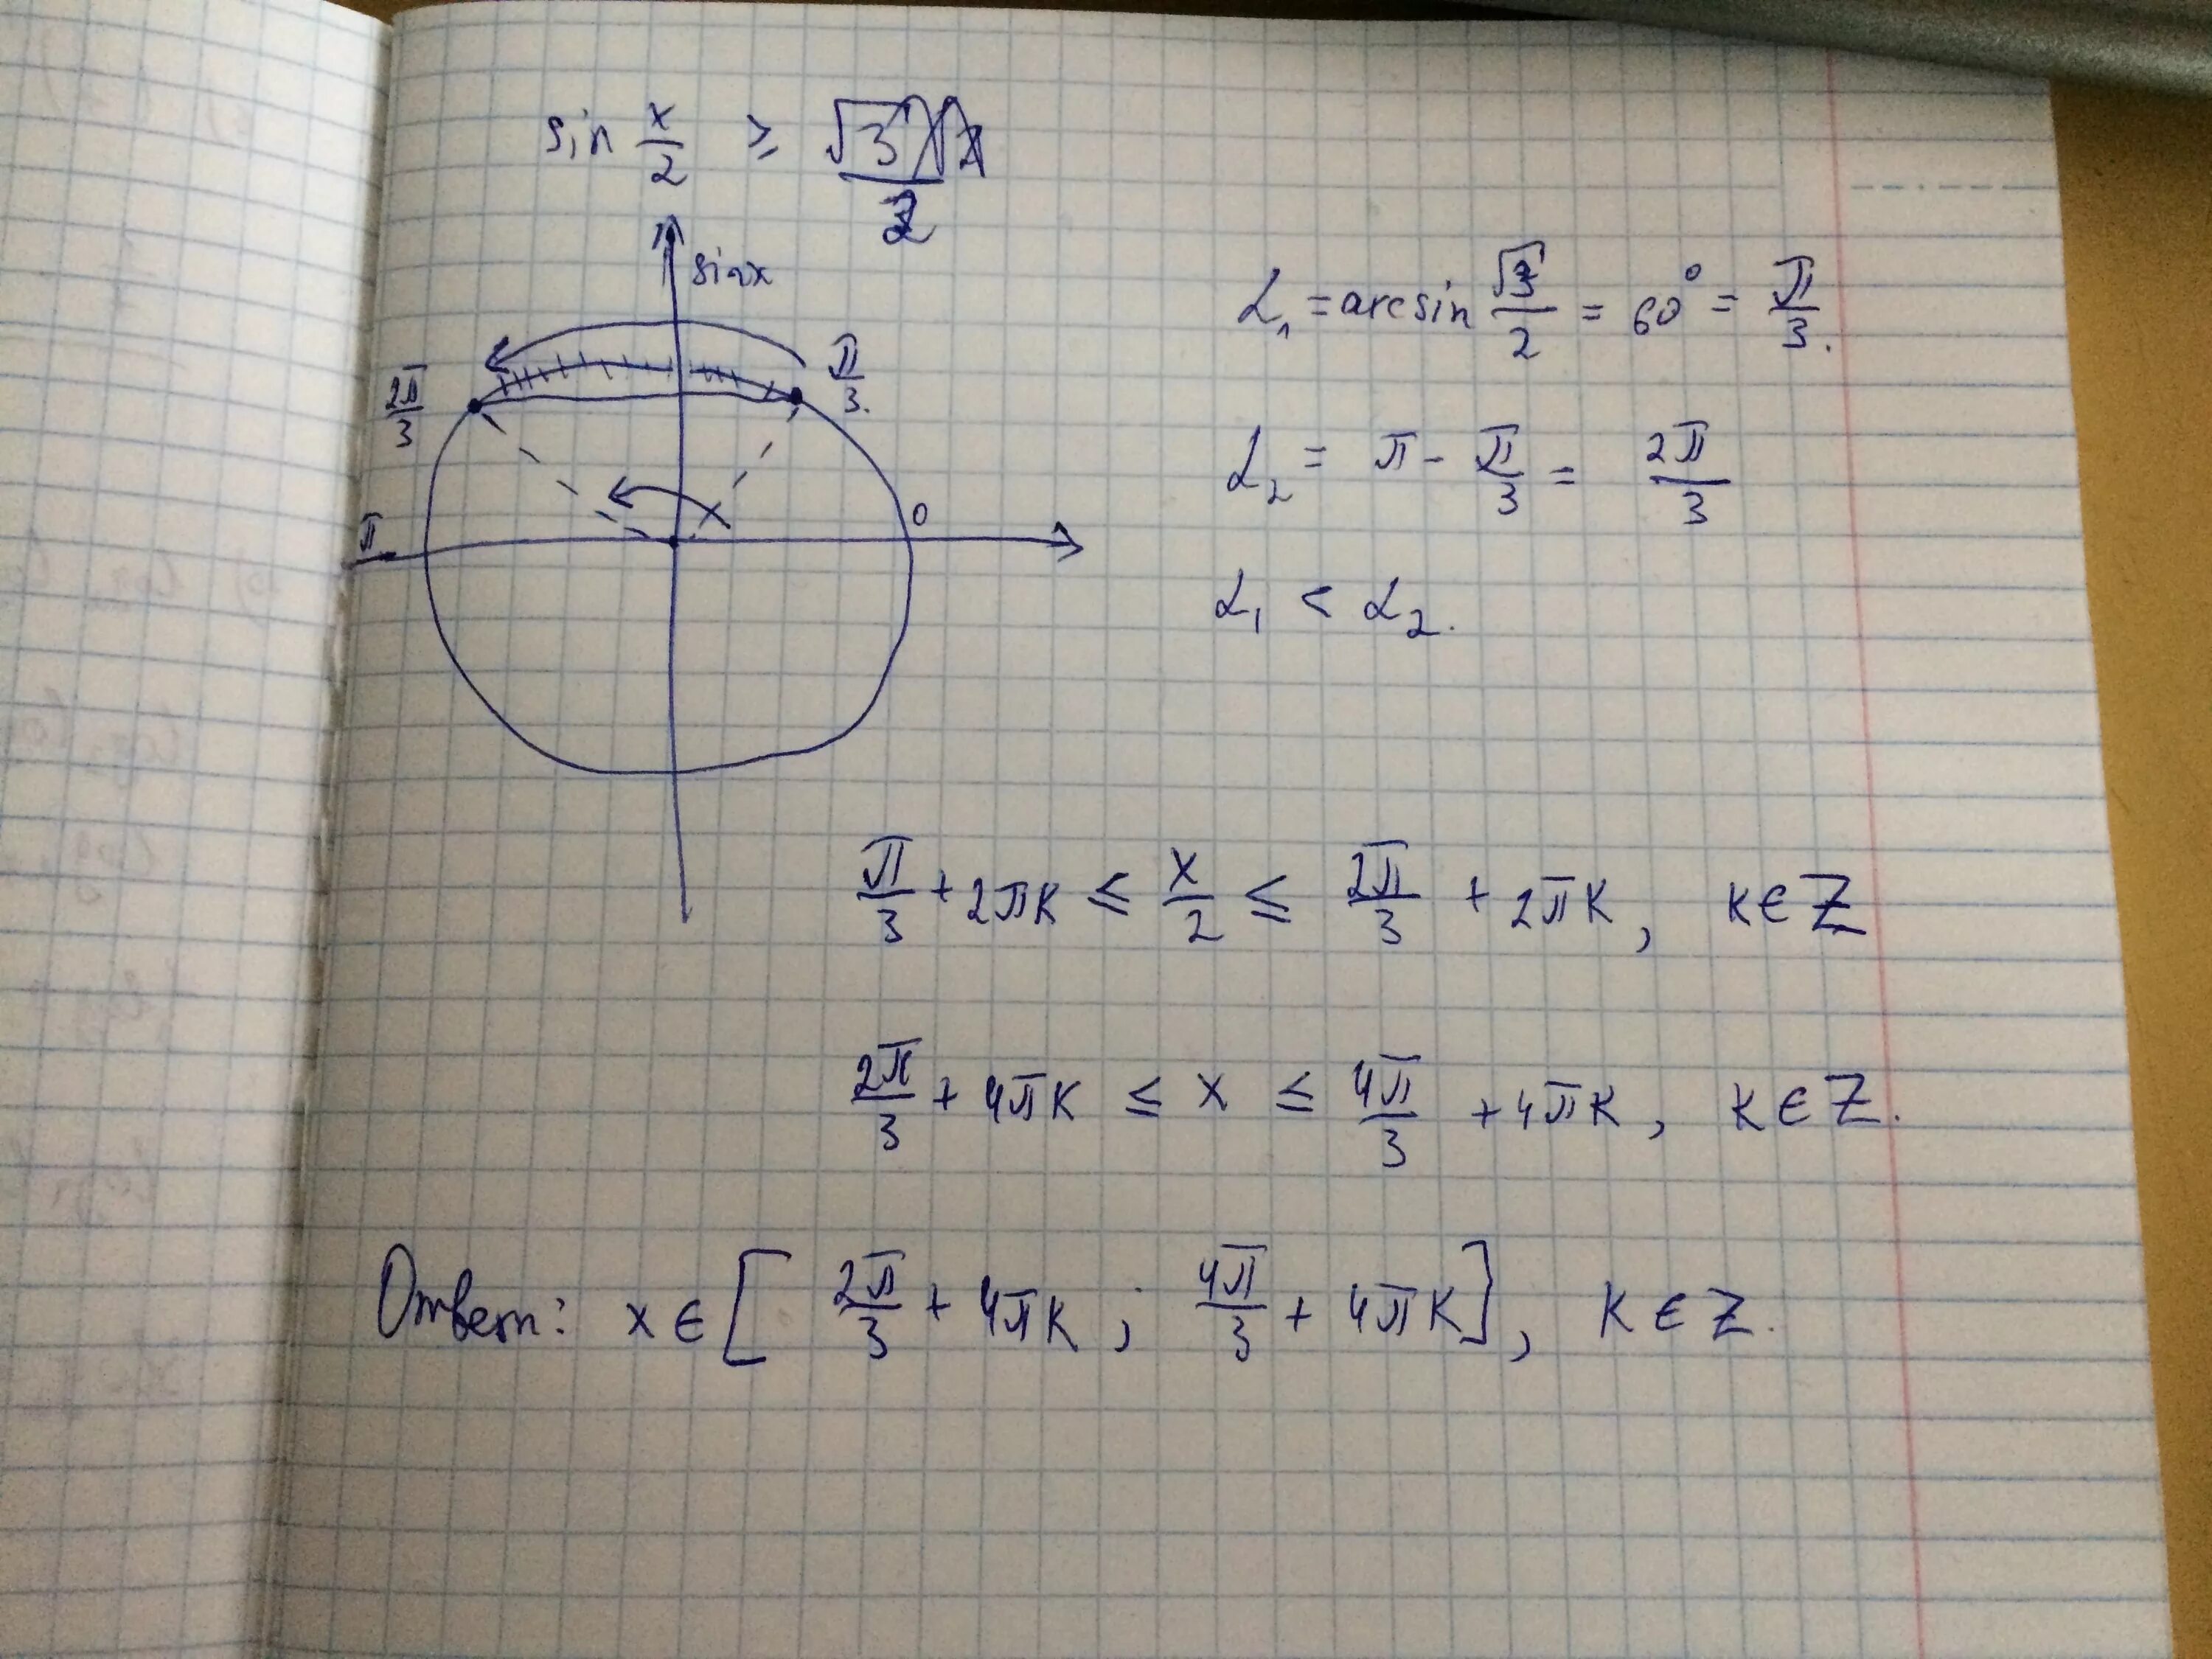 sin x/2 ≥ √3/2
sinx
2π/3
π/3.
π
0
α₁ = arcsin √3/2 = 60° = π/3.
α₂ = π - π/3 = 2π/3
α₁ < α₂.
π/3 + 2πk ≤ x/2 ≤ 2π/3 + 2πk, k∈Z
2π/3 + 4πk ≤ x ≤ 4π/3 + 4πk, k∈Z.
Ответ: x∈[2π/3 + 4πk; 4π/3 + 4πk], k∈Z.